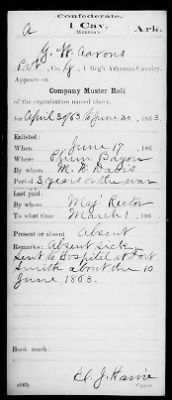 Confederate.
A
1 Cav.
(Monroe's)
Ark.
G. W. Aarons
Pvt, Co. , 1 Reg't Arkansas Cavalry.
Appears on
Company Muster Roll
of the organization named above,
for April 30/63 to June 30, 1863.
Enlisted:
When June 17, 186 .
Where Plum Bayou
By whom M. D. Davis
Period 3 years or the war
Last paid:
By whom Maj. Rector
To what time March 1, 186 .
Present or absent Absent
Remarks: Absent sick
Sent to Hospital at Fort
Smith about the 10
June 1863.
Book mark:
(642)
Copyist.